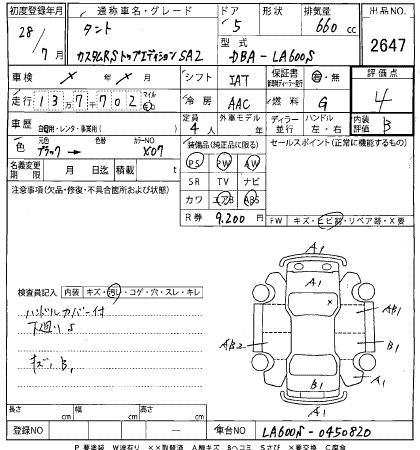 初度登録年月 通称車名・グレード ドア 形状 排気量 出品NO.
28/7月 タント 5 660cc 2647
カスタムRSトップエディションSA2 型式 DBA-LA600S
車検 × × シフト IAT 保証書 新車時ディーラー発行 有・無 評価点
走行 137702 マイル km 冷房 AAC 燃料 G 4
車歴 自家用・レンタ・事業用( ) 定員 4人 外車モデル 年 ディーラー 並行 ハンドル 左・右 内装評価 B
色 元色 ブラック→ 色替 カラーNO X07 装備品(純正品に限る) セールスポイント(正常に機能するもの)
名義変更期限 月 日迄 積載 t PS PW AW
注意事項(欠品・修復・不具合箇所および状態) SR TV ナビ
カワ エアB ABS
R券 9,200円 FW キズ・ヒビ割・リペア跡・X要
A1
A1
×
検査員記入 内装 キズ・汚れ・コゲ・穴・スレ・キレ AB1
ハンドルカバー付
下廻りS AB2 B1
キズ、B、 A1
B1
A1
長さ cm 幅 cm 高さ cm
登録NO — 車台NO LA600S-0450820
P要塗装 W波有り ××取替済 A線キズ Bヘコミ Sさび ×要交換 C腐食